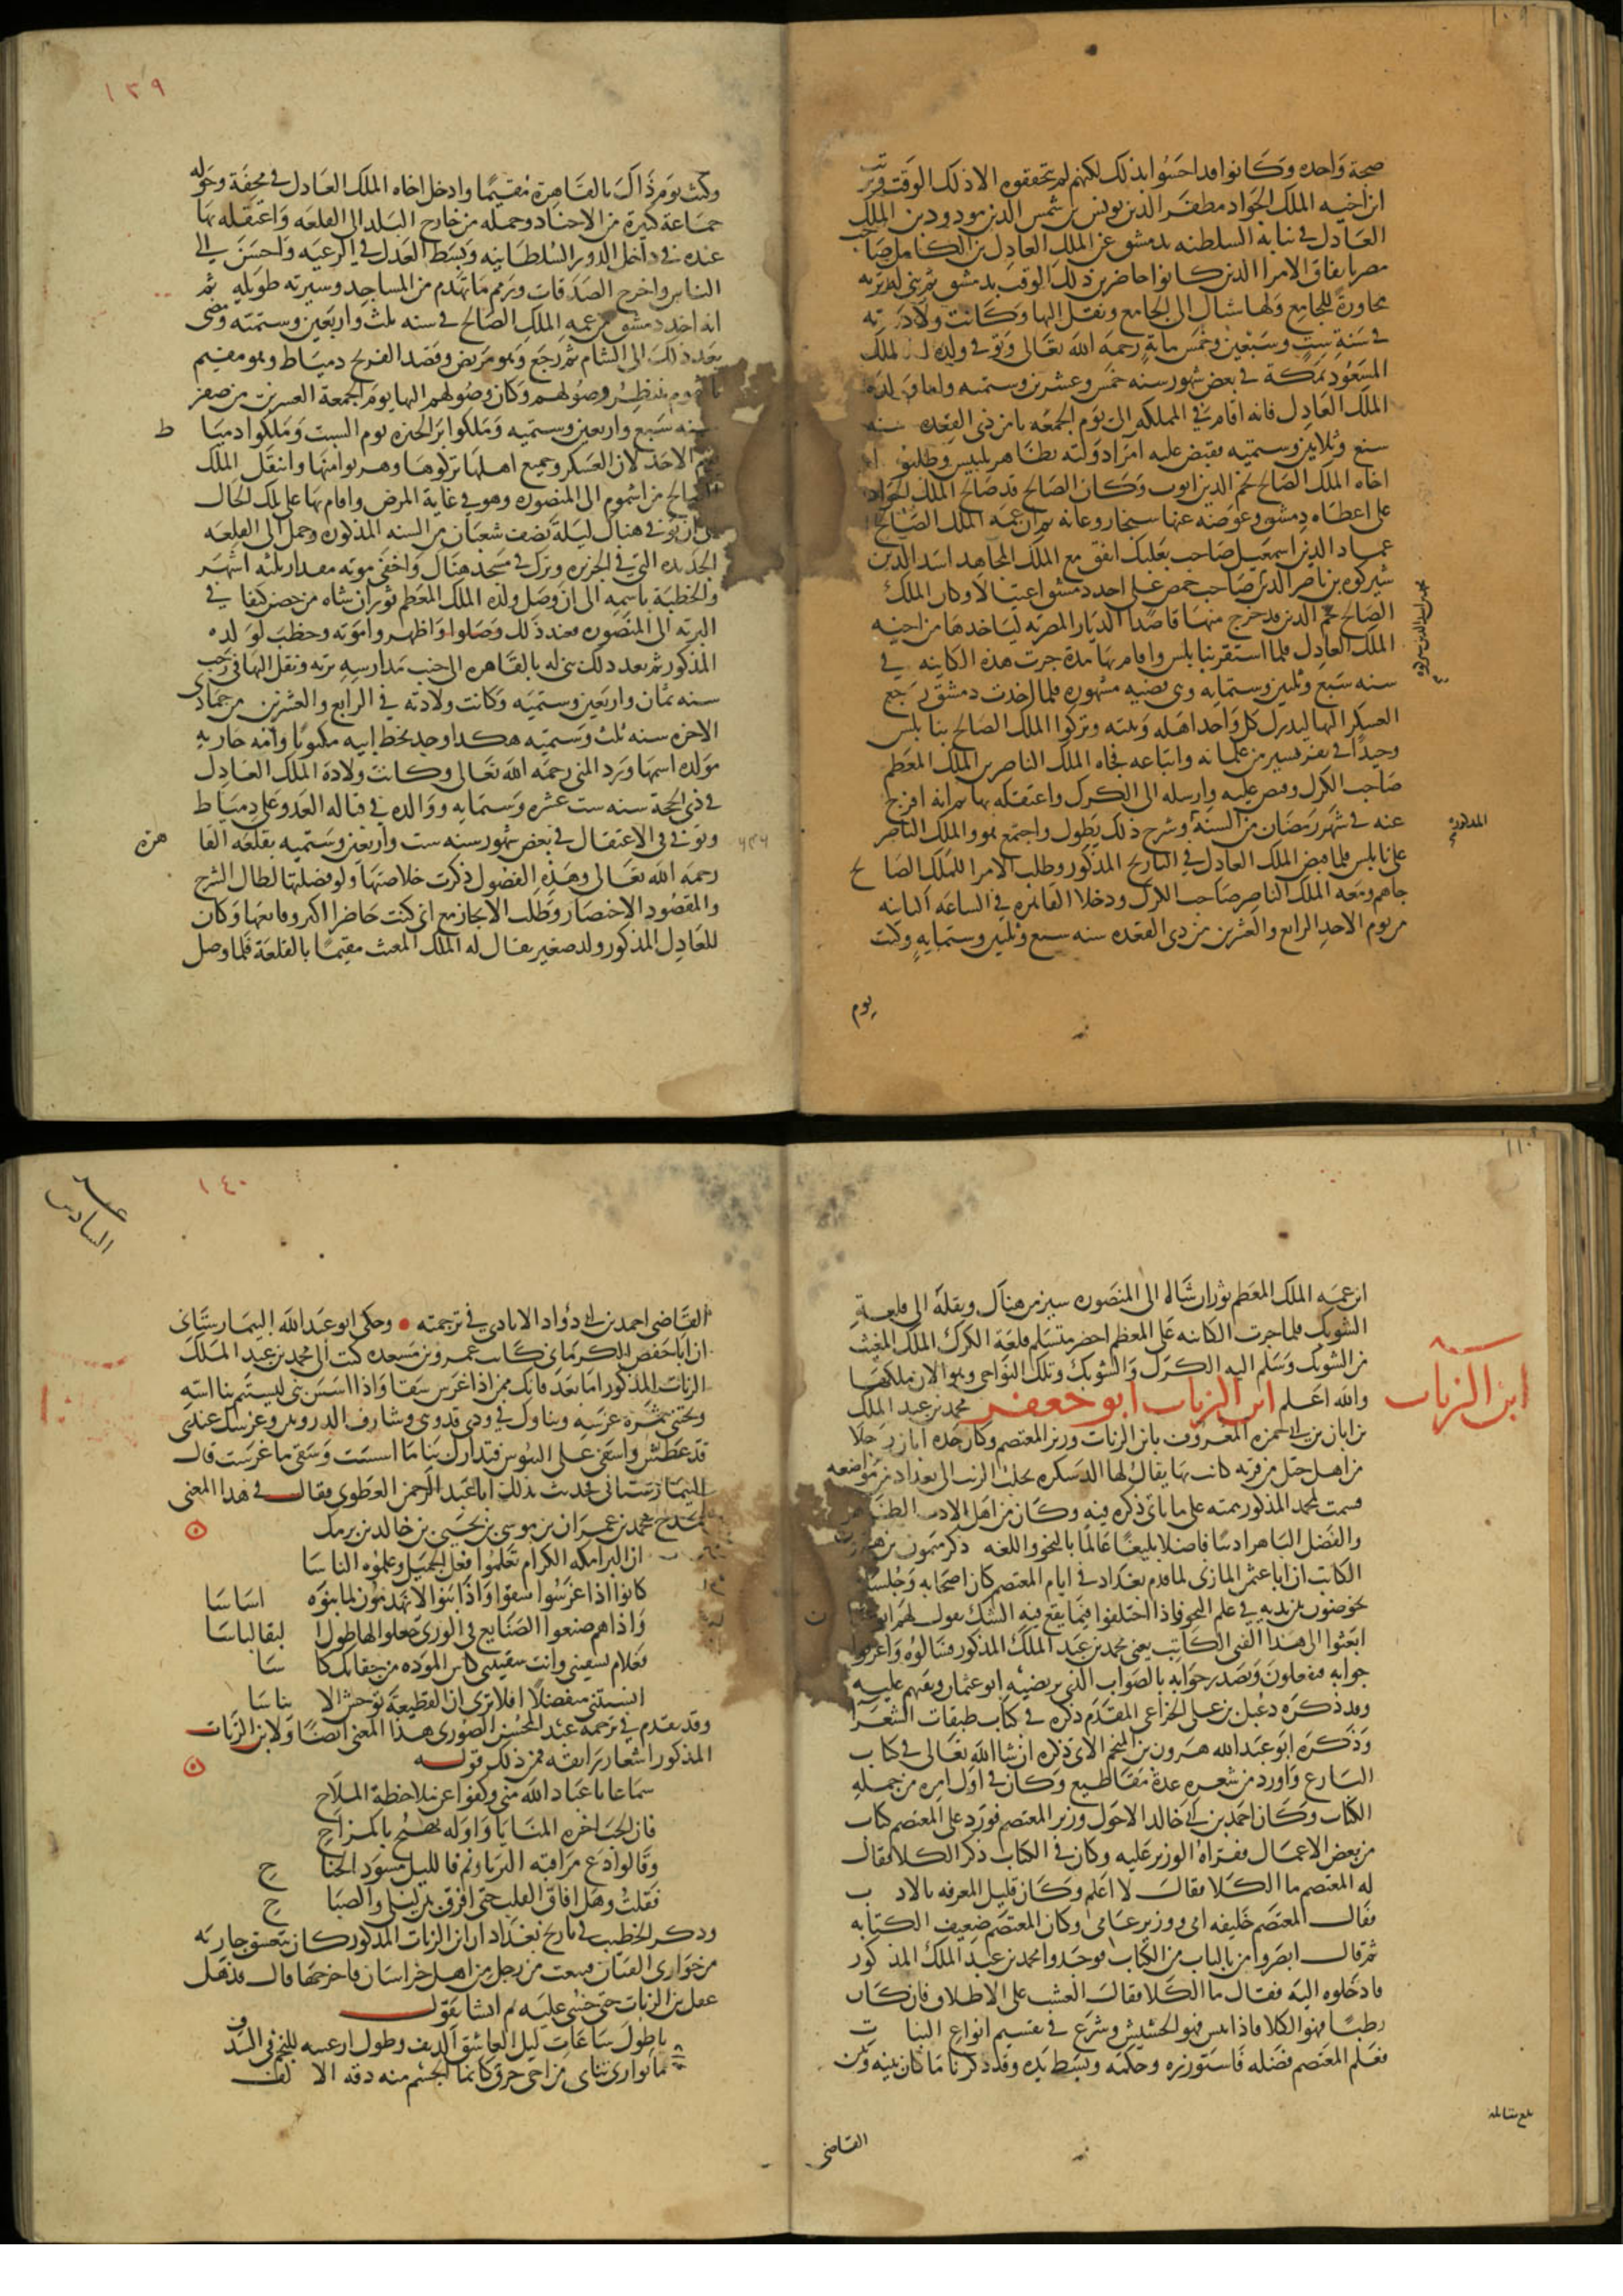 ١٠٩
صيحة واحده وكانوا قد احسوا بذلك لكنهم لم يتحققوه الا ذلك الوقت وترتب
ابن اخيه الملك الجواد مظفر الدين يونس بن شمس الدين مودود بن الملك
العادل في نيابة السلطنه بدمشق عن الملك العادل بن الكامل صاحب
مصر باتفاق الامرا الذين كانوا حاضرين ذلك الوقت بدمشق ثم بني له تربه
مجاورة للجامع ولها شباك الى الجامع ونقل اليها وكانت ولادته
في سنة ست وسبعين وخمس ماية رحمه الله تعالى وتوفي ولده الملك
المسعود بمكة في بعض شهور سنه خمس وعشرين وستميه واما ولده
الملك العادل فانه اقام في المملكه الى يوم الجمعه ثامن ذي القعده سنه
سبع وثلاثين وستميه فقبض عليه امرا دولته بظاهر بلبيس وطلبوا
اخاه الملك الصالح نجم الدين ايوب وكان الصالح قد صالح الملك الجواد
على اعطاه دمشق وعوضه عنها سنجار وعانه ثم ان عمه الملك الصالح
عماد الدين اسمعيل صاحب بعلبك اتفق مع الملك المجاهد اسد الدين
شيركوه بن ناصر الدين صاحب حمص على اخد دمشق اغتيالا وكان الملك
الصالح نجم الدين قد خرج منها قاصدا الديار المصريه ليأخدها من اخيه
الملك العادل فلما استقر بنابلس واقام بها مدة جرت هذه الكاينه في
سنه سبع وثلثين وستمايه وهي قضيه مشهوره فلما اخذت دمشق رجع
العسكر اليها ليدرك كل واحد اهله وبيته وتركوا الملك الصالح بنابلس
وحيدا في نفر يسير من غلمانه واتباعه فجاه الملك الناصر بن الملك المعظم
صاحب الكرك وقبض عليه وارسله الى الكرك واعتقله بها ثم انه افرج
عنه في شهر رمضان من السنة وشرح ذلك يطول واجتمع هو والملك الناصر
المذكوره
على نابلس فلما قبض الملك العادل في التاريخ المذكور وطلب الامرا للملك الصالح
جاهم ومعه الملك الناصر صاحب الكرك ودخلا القاهره في الساعه الثانيه
من يوم الاحد الرابع والعشرين من ذي القعده سنه سبع وثلثين وستمايه وكنت
يوم
١٣٩
وكنت يوم ذاك بالقاهرة مقيما وادخل اخاه الملك العادل في محفة وحوله
جماعة كبيرة من الاجناد وحمله من خارج البلد الى القلعه واعتقله بها
عنده في داخل الدور السلطانيه وبسط العدل في الرعيه واحسن الى
الناس واخرج الصدقات ورمم ما تهدم من المساجد وسيرته طويله ثم
انه اخذ دمشق من عمه الملك الصالح في سنه ثلث واربعين وستميه ومضى
بعد ذلك الى الشام ثم رجع وهو مريض وقصد الفرنج دمياط وهو مقيم
باشموم ينتظر وصولهم وكان وصولهم اليها يوم الجمعة العشرين من صفر
سنه سبع واربعين وستميه وملكوا بر الجزه يوم السبت وملكوا دمياط
يوم الاحد لان العسكر وجميع اهلها تركوها وهربوا منها وانتقل الملك
الصالح من اشموم الى المنصوره وهو في غاية المرض واقام بها على تلك الحال
الى ان توفي هناك ليلة نصف شعبان من السنه المذكوره وحمل الى القلعه
الجديده التي في الجزيره وترك في مسجد هناك واخفي موته مقدار ثلثه اشهر
والخطبة باسمه الى ان وصل ولده الملك المعظم توران شاه من حصن كيفا في
البريه الى المنصوره فعند ذلك وصلوا واظهروا موته وخطب لولده
المذكور ثم بعد ذلك بني له بالقاهره الى جنب مدارسه تربه ونقل اليها في رجب
سنه ثمان واربعين وستميه وكانت ولادته في الرابع والعشرين من جمادى
الاخره سنه ثلث وستميه هكدا وجد بخط ابيه مكتوبا وامه جاريه
مولده اسمها ورد المنى رحمه الله تعالى وكانت ولادة الملك العادل
في ذي الحجة سنه ست عشره وستمايه ووالده في قباله العدو على دمياط
وتوفي في الاعتقال في بعض شهور سنه ست واربعين وستميه بقلعه القاهرة
رحمه الله تعالى وهذه الفصول ذكرت خلاصتها ولو فصلتها لطال الشرح
والمقصود الاختصار وطلب الايجاز مع اني كنت حاضرا اكثر وقايعها وكان
للعادل المذكور ولد صغير يقال له الملك المغيث مقيما بالقلعة فلما وصل
١١٠
ابن عمه الملك المعظم توران شاه الى المنصوره سير من هناك ونقله الى قلعة
الشوبك فلما جرت الكاينه على المعظم احضر متسلم قلعة الكرك الملك المغيث
من الشوبك وسلم اليه الكرك والشوبك وتلك النواحي وهو الان ملكها
والله اعلم ابن الزيات ابو جعفر محمد بن عبد الملك
ابن الزيات
بن ابان بن ابي حمزه المعروف بابن الزيات وزير المعتصم وكان جده ابان رجلا
من اهل جبل من قريه كانت بها يقال لها الدسكره يجلب الزيت الى بغداد من مواضعه
فسمت لمحمد المذكور همته على ما ياتي ذكره فيه وكان من اهل الادب الظاهر
والفضل الباهر اديبا فاضلا بليغا عالما بالنحو واللغه ذكر ميمون بن هرون
الكاتب ان ابا عثمن المازني لما قدم بغداد في ايام المعتصم كان اصحابه وجلساه
يخوضون بين يديه في علم النحو فاذا اختلفوا فيما يقع فيه الشك يقول لهم ابو عثمن
ابعثوا الى هذا الفتى الكاتب يعني محمد بن عبد الملك المذكور فسالوه واعرفوا
جوابه فيفعلون ويصدر جوابه بالصواب الذي يرتضيه ابو عثمان ويقفهم عليه
وقد ذكره دعبل بن علي الخزاعي المقدم ذكره في كتاب طبقات الشعرا
وذكره ابو عبد الله هرون بن المنجم الاتي ذكره ان شا الله تعالى في كتاب
البارع واورد من شعره عدة مقاطيع وكان في اول امره من جمله
الكتاب وكان احمد بن ابي خالد الاحول وزير المعتصم فورد على المعتصم كتاب
من بعض الاعمال فقراه الوزير عليه وكان في الكتاب ذكر الكلا فقال
له المعتصم ما الكلا فقال لا اعلم وكان قليل المعرفه بالادب
فقال المعتصم خليفه امي ووزير عامي وكان المعتصم ضعيف الكتابه
ثم قال ابصروا من بالباب من الكتاب فوجدوا محمد بن عبد الملك المذكور
فادخلوه اليه فقال ما الكلا فقال العشب على الاطلاق فان كان
رطبا فهو الكلا فاذا يبس فهو الحشيش وشرع في تقسيم انواع النبات
فعلم المعتصم فضله فاستوزره وحكمه وبسط يده وقد ذكرنا ما كان بينه وبين
بلغ مقابلة
القاضي
١٤٠
السادس عشر
القاضي احمد بن ابي دؤاد الايادي في ترجمته • وحكى ابو عبد الله البيمارستاني
ان ابا حفص الكرماني كاتب عمرو بن مسعده كتب الى محمد بن عبد الملك
الزيات المذكور اما بعد فانك ممن اذا غرس سقا واذا اسس بنى ليستتم بنا اسه
ويجتني ثمرة غرسه وبناوك في ودي قد وهى وشارف الدروس وغرسك عندي
قد عطش واشفى على اليبوس فتدارك بنا ما اسست وسقي ما غرست قال
البيمارستاني فحدثت بذلك ابا عبد الرحمن العطوي فقال في هذا المعنى
يمدح محمد بن عمران بن موسى بن يحيى بن خالد بن برمك
ان البرامكه الكرام تعلموا فعل الجميل وعلموه الناسا
كانوا اذا غرسوا سقوا واذا بنوا لا يهدمون لما بنوه اساسا
واذا هم صنعوا الصنايع في الورى جعلوا لها طول البقا لباسا
فعلام تسقيني وانت سقيتني كاس الموده من جفايك كاسا
انستني متفضلا افلا ترى ان القطيعة توحش الايناسا
وقد تقدم في ترجمه عبد المحسن الصوري هذا المعنى ايضا ولابن الزيات
المذكور اشعار رايقه فمن ذلك قوله
سماعا يا عباد الله مني وكفوا عن ملاحظة الملاح
فان الحب اخره المنايا واوله يهيج بالمزاح
وقالوا دع مراقبه الثريا ونم فالليل مسود الجناح
فقلت وهل افاق القلب حتى افرق بين ليلي والصباح
وذكر الخطيب في تاريخ بغداد ان ابن الزيات المذكور كان يتعشق جاريه
من جواري القيان فبيعت من رجل من اهل خراسان فاخرجها قال فذهل
عقل بن الزيات حتى خشي عليه ثم انشا يقول
يا طول ساعات ليل العاشق الدنف وطول رعيته للنجم في السدف
ما تواري ثيابي من اخي حرق كانما الجسم منه دقه الالف